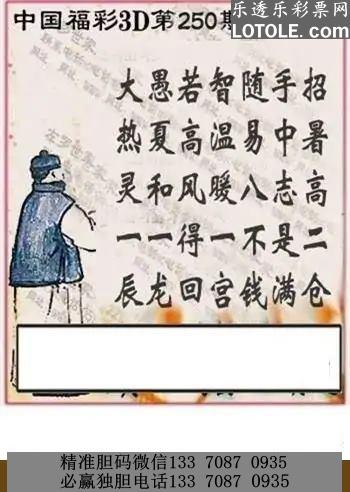 乐透乐彩票网
LOTOLE.COM
中国福彩3D第250期
大愚若智随手招
热夏高温易中暑
灵和风暖八志高
一一得一不是二
辰龙回宫钱满仓
精准胆码微信133 7087 0935
必赢独胆电话133 7087 0935